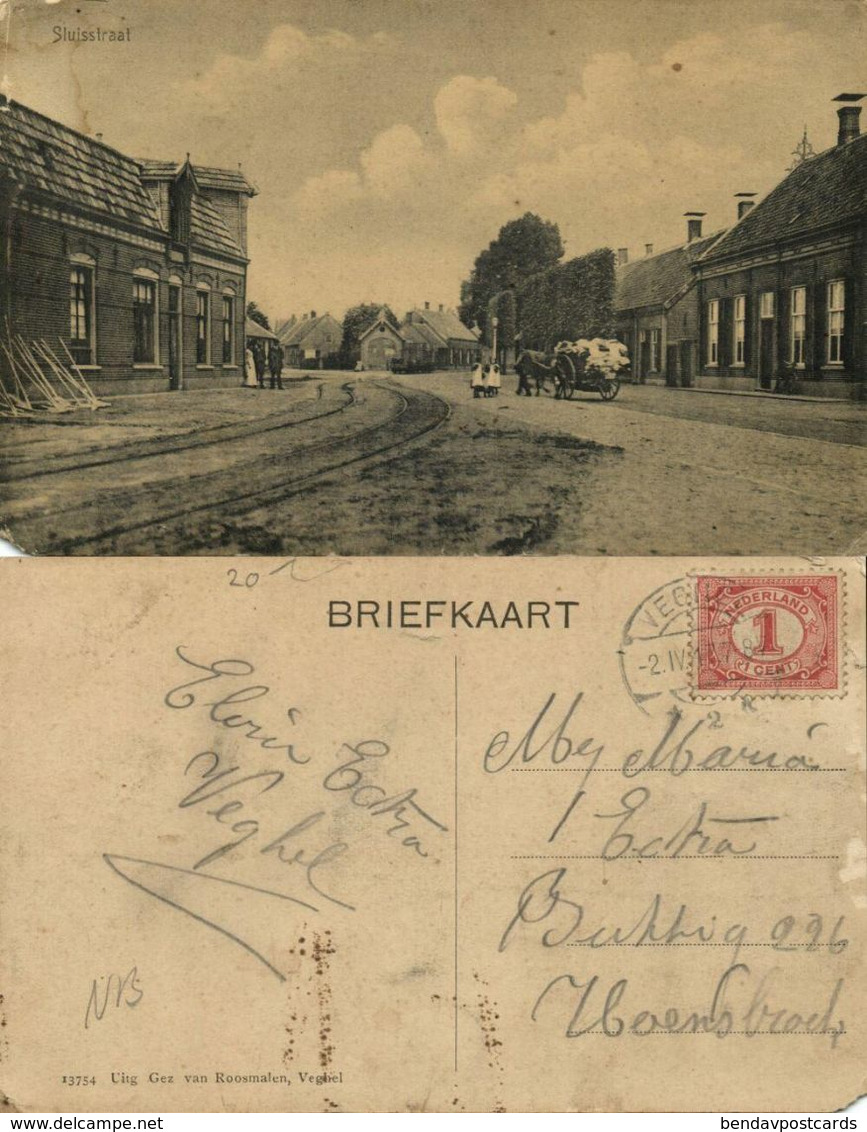 Sluisstraat
20
BRIEFKAART
NEDERLAND
1
1 CENT
-2.IV
2
Elvir Ectra
Veghel
Mej Maria
Ectra
Buttig 226
Hoensbroek
NB
13754 Uitg Gez van Roosmalen, Veghel
delcampe.net
bendavpostcards